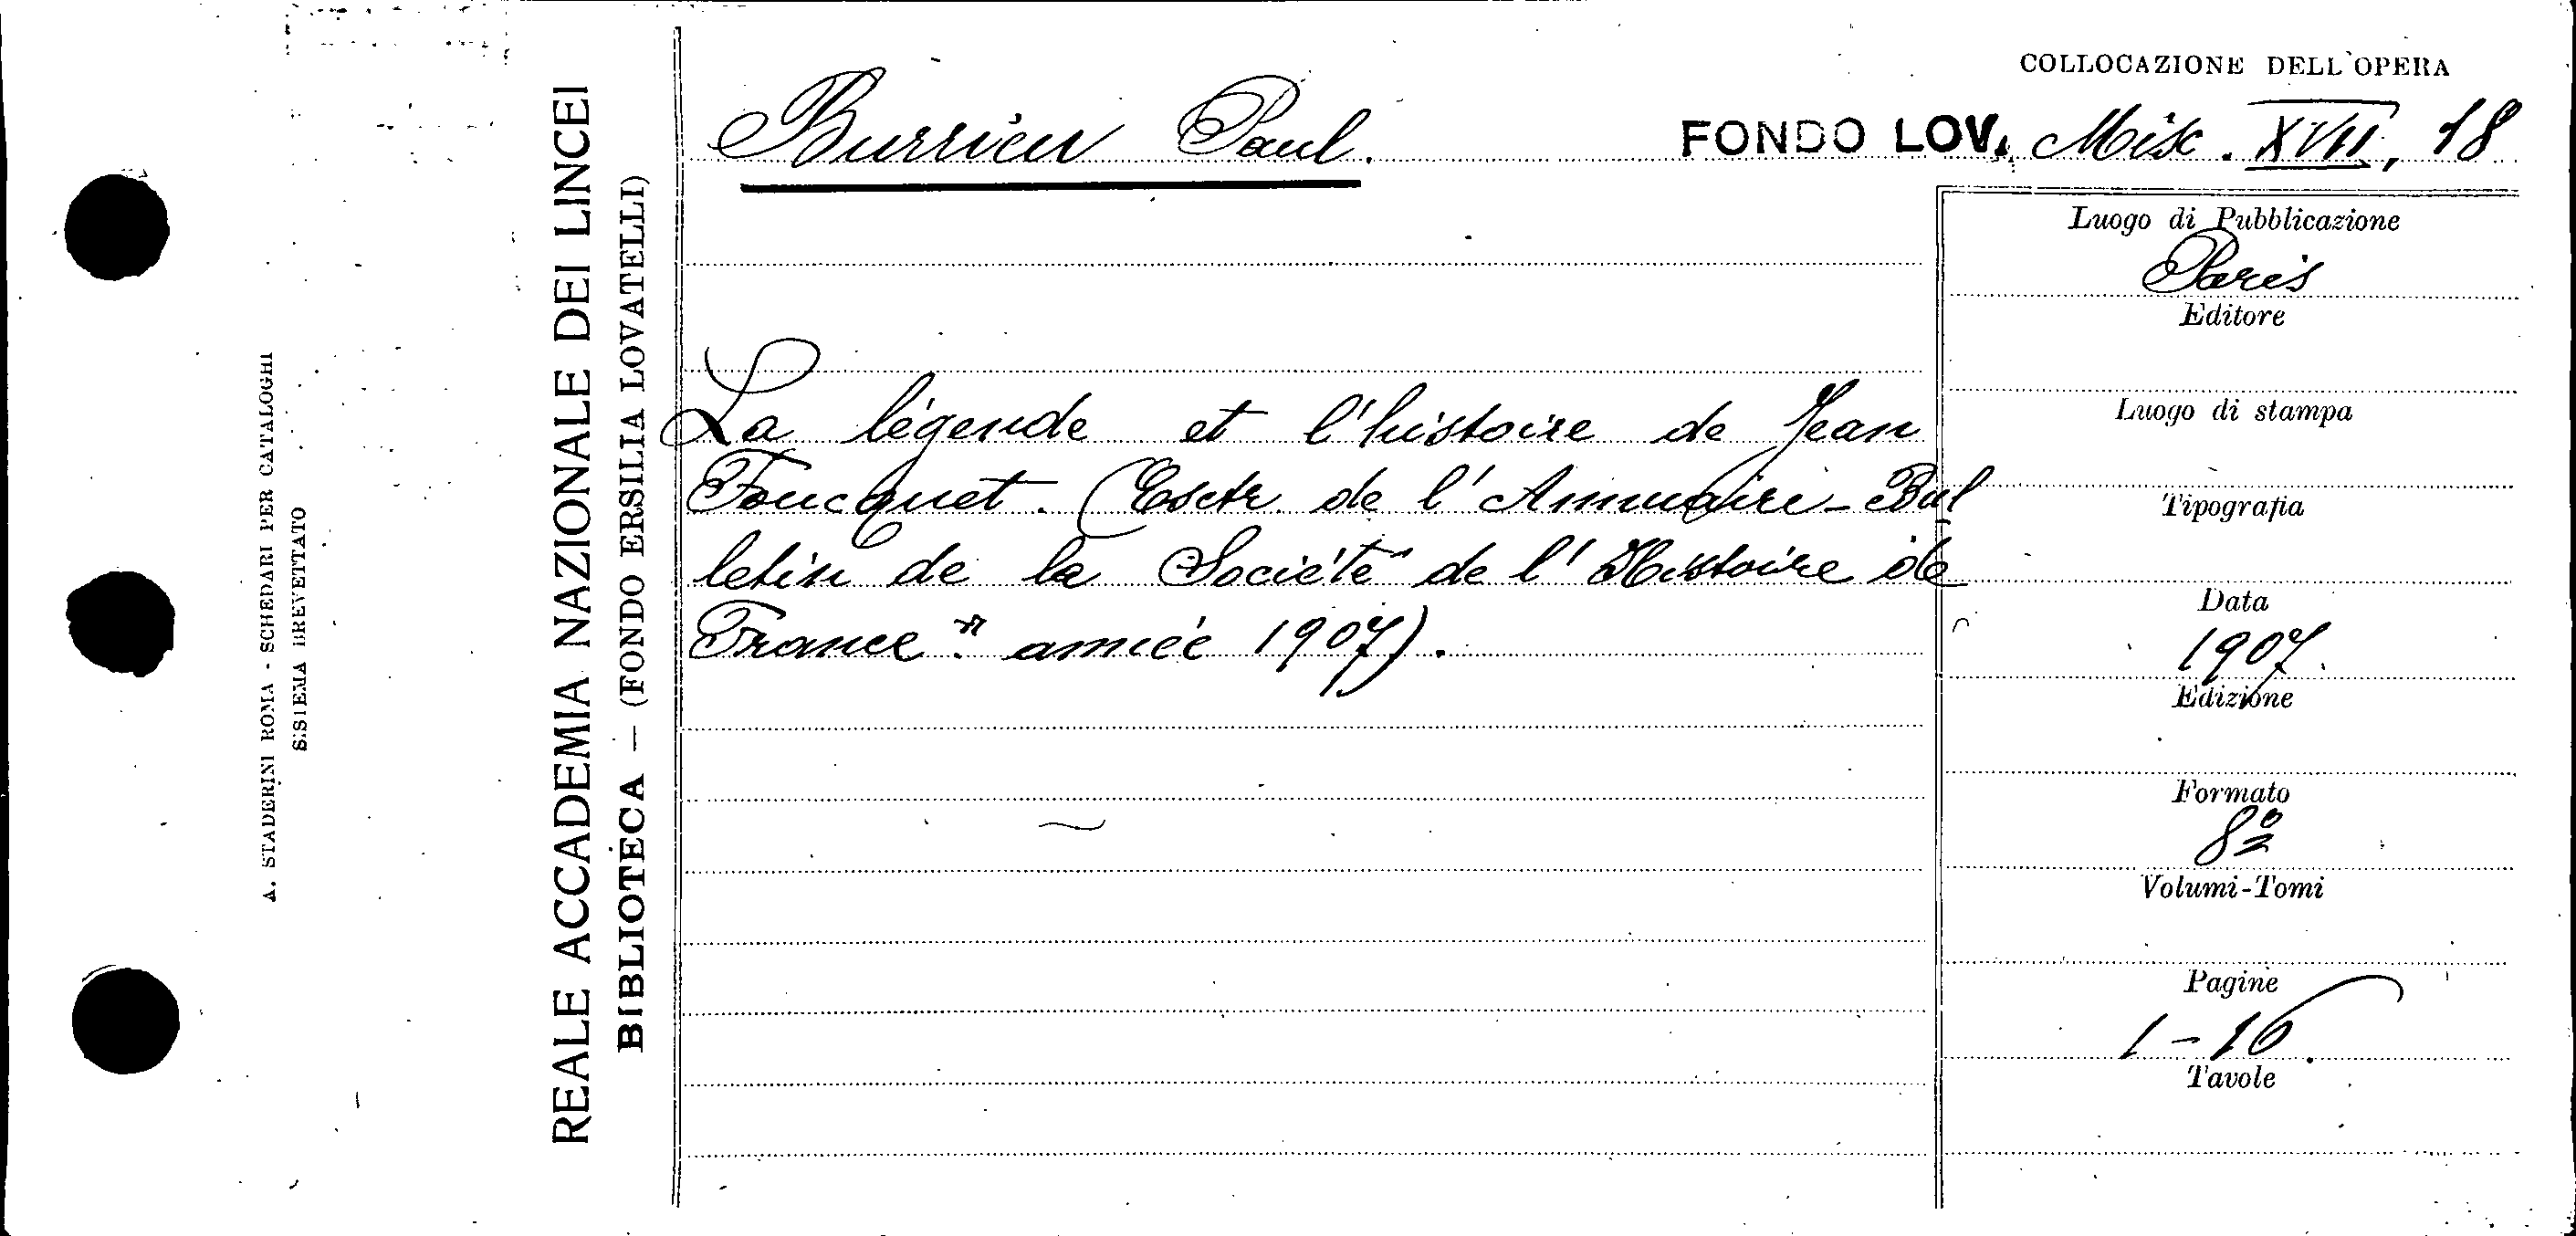 COLLOCAZIONE DELL'OPERA
Burrieu Paul.
FONDO LOV. Misc. XVII, 18
La légende et l'histoire de Jean
Foucquet. (Esctr. de l'Annuaire-Bul
letin de la Société de l'Histoire de
France" année 1907).
Luogo di Pubblicazione
Paris
Editore
Luogo di stampa
Tipografia
Data
1907.
Edizione
Formato
8º
Volumi-Tomi
Pagine
1-16.
Tavole
REALE ACCADEMIA NAZIONALE DEI LINCEI
BIBLIOTECA — (FONDO ERSILIA LOVATELLI)
A. STADERINI ROMA - SCHEDARI PER CATALOGHI
SISTEMA BREVETTATO